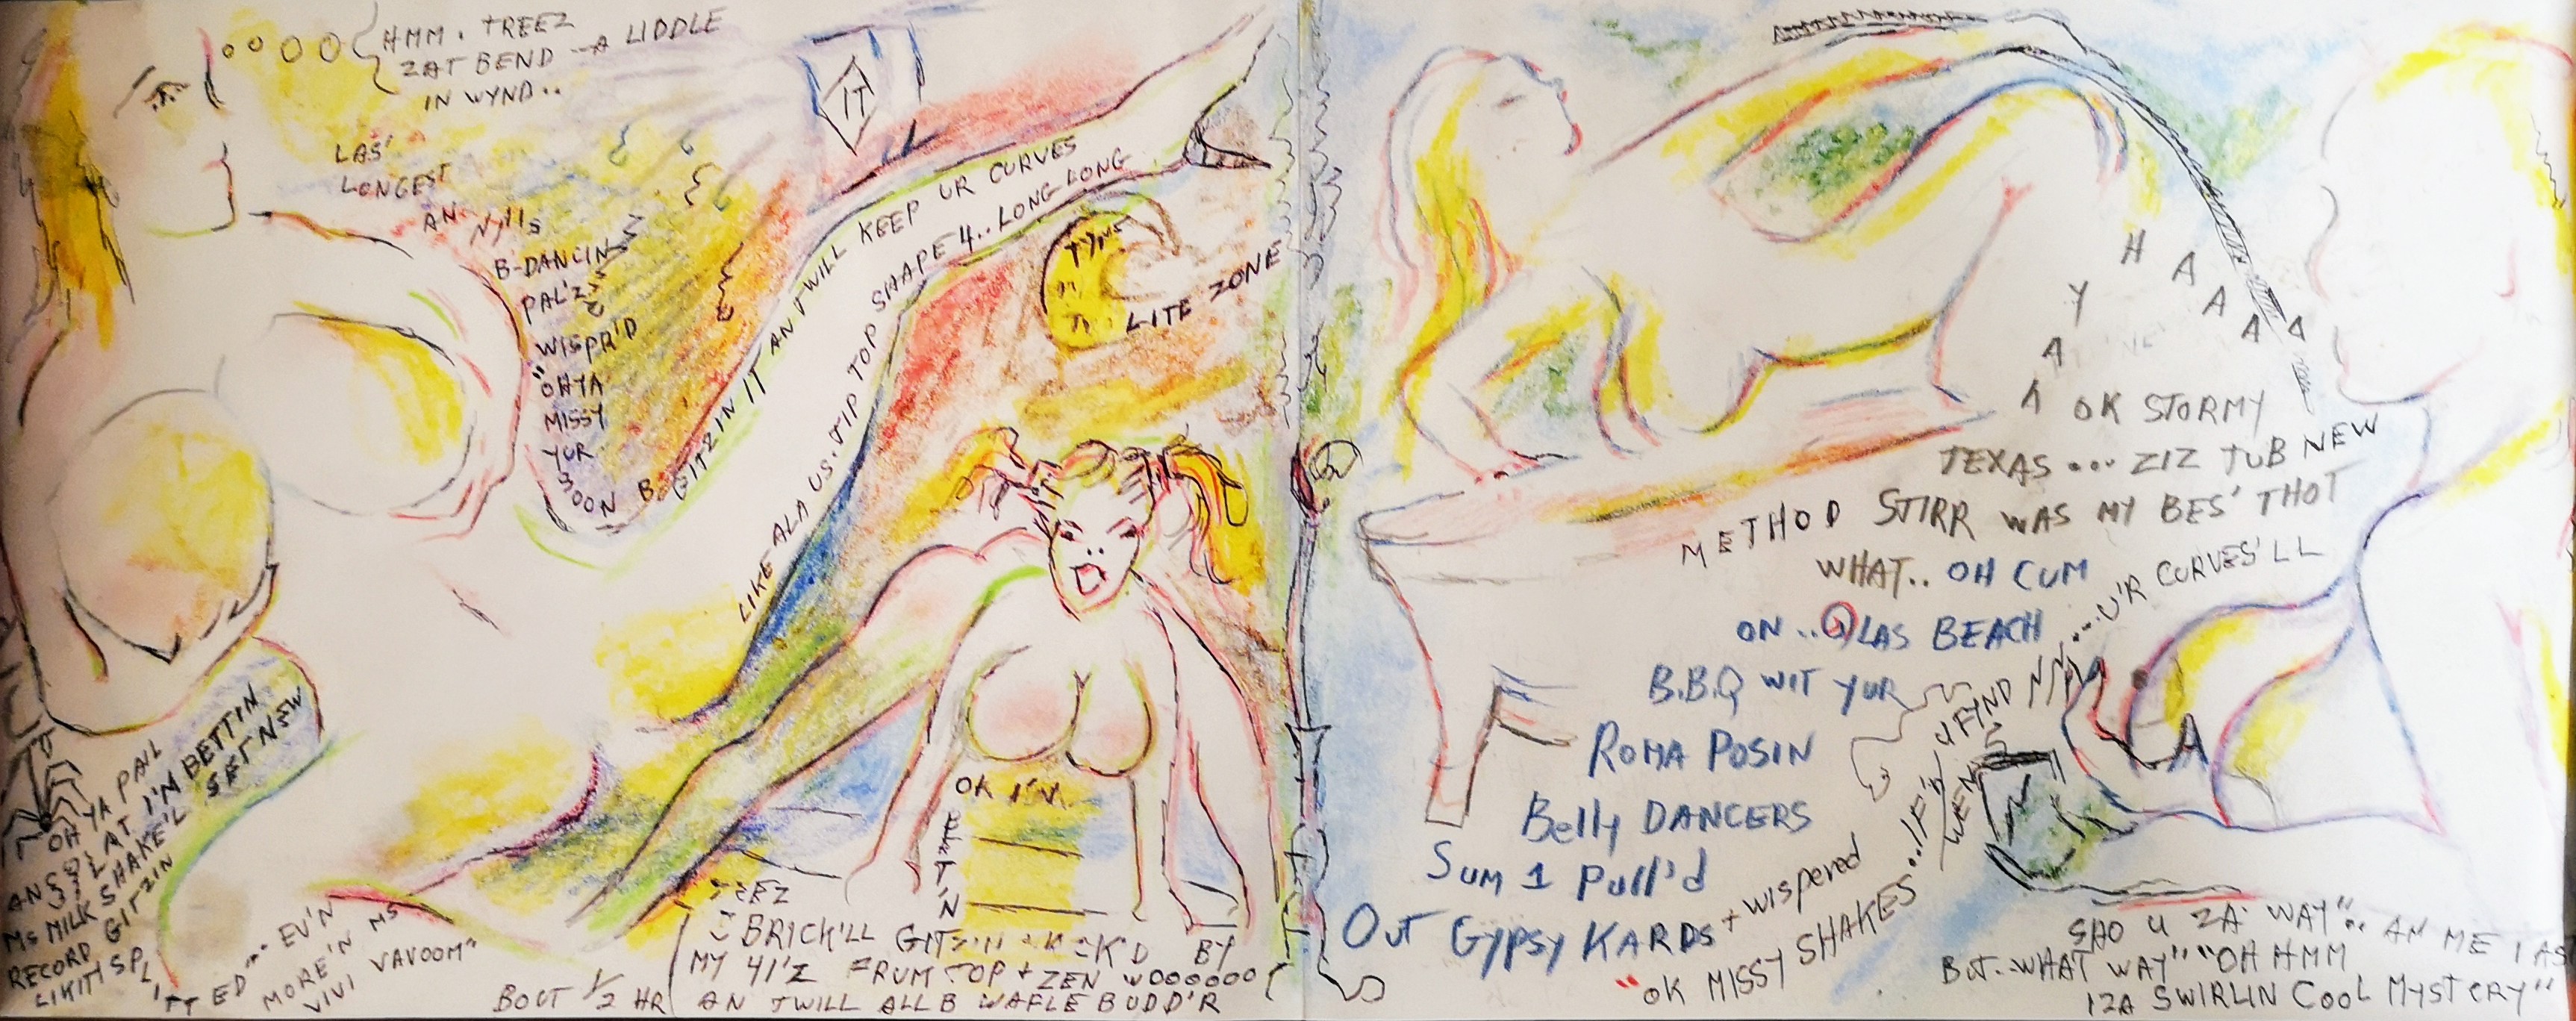 HMM. TREEZ
ZAT BEND - A LIDDLE
IN WYND..
LAS'
LONGEST
AN NYIIS
B-DANCIN
PAL'Z
WISPR'D
"OH YA
MISSY
YUR
SOON B GITZIN IT AN TWILL KEEP UR CURVES
LIKE ALA US. TIP TOP SHAPE 4.. LONG LONG
IT
TYME
LITE ZONE
OH YA PAIL
AN LAT I'M BETTIN
MS MILK SHAKE'L SET NEW
RECORD GITZIN
LIKITI SPLITTED... EV'N
MORE'N MS
VIVI VAVOOM"
OK I'M
BET'N
BRICK'LL BY
MY 41'Z FRUM TOP + ZEN WOOOOOO
BOUT 1/2 HR AN TWILL ALL B WAFLE BUDD'R
A A Y H A A A A
OK STORMY
TEXAS ... ZIZ TUB NEW
METHOD STIRR WAS MY BES' THOT
WHAT.. OH CUM
ON.. @ LAS BEACH
B.B.Q WIT YUR
ROMA POSIN
Belly DANCERS
SUM 1 Pull'd
OUT GYPSY KARDS + WISPERED
"OK MISSY SHAKES'..IF'N WEN U FYND ... U'R CURVES'LL
A
SAO U ZA' WAY".. AN ME I AS
BUT.. WHAT WAY" "OH HMM
IZA SWIRLIN COOL MYSTERY"